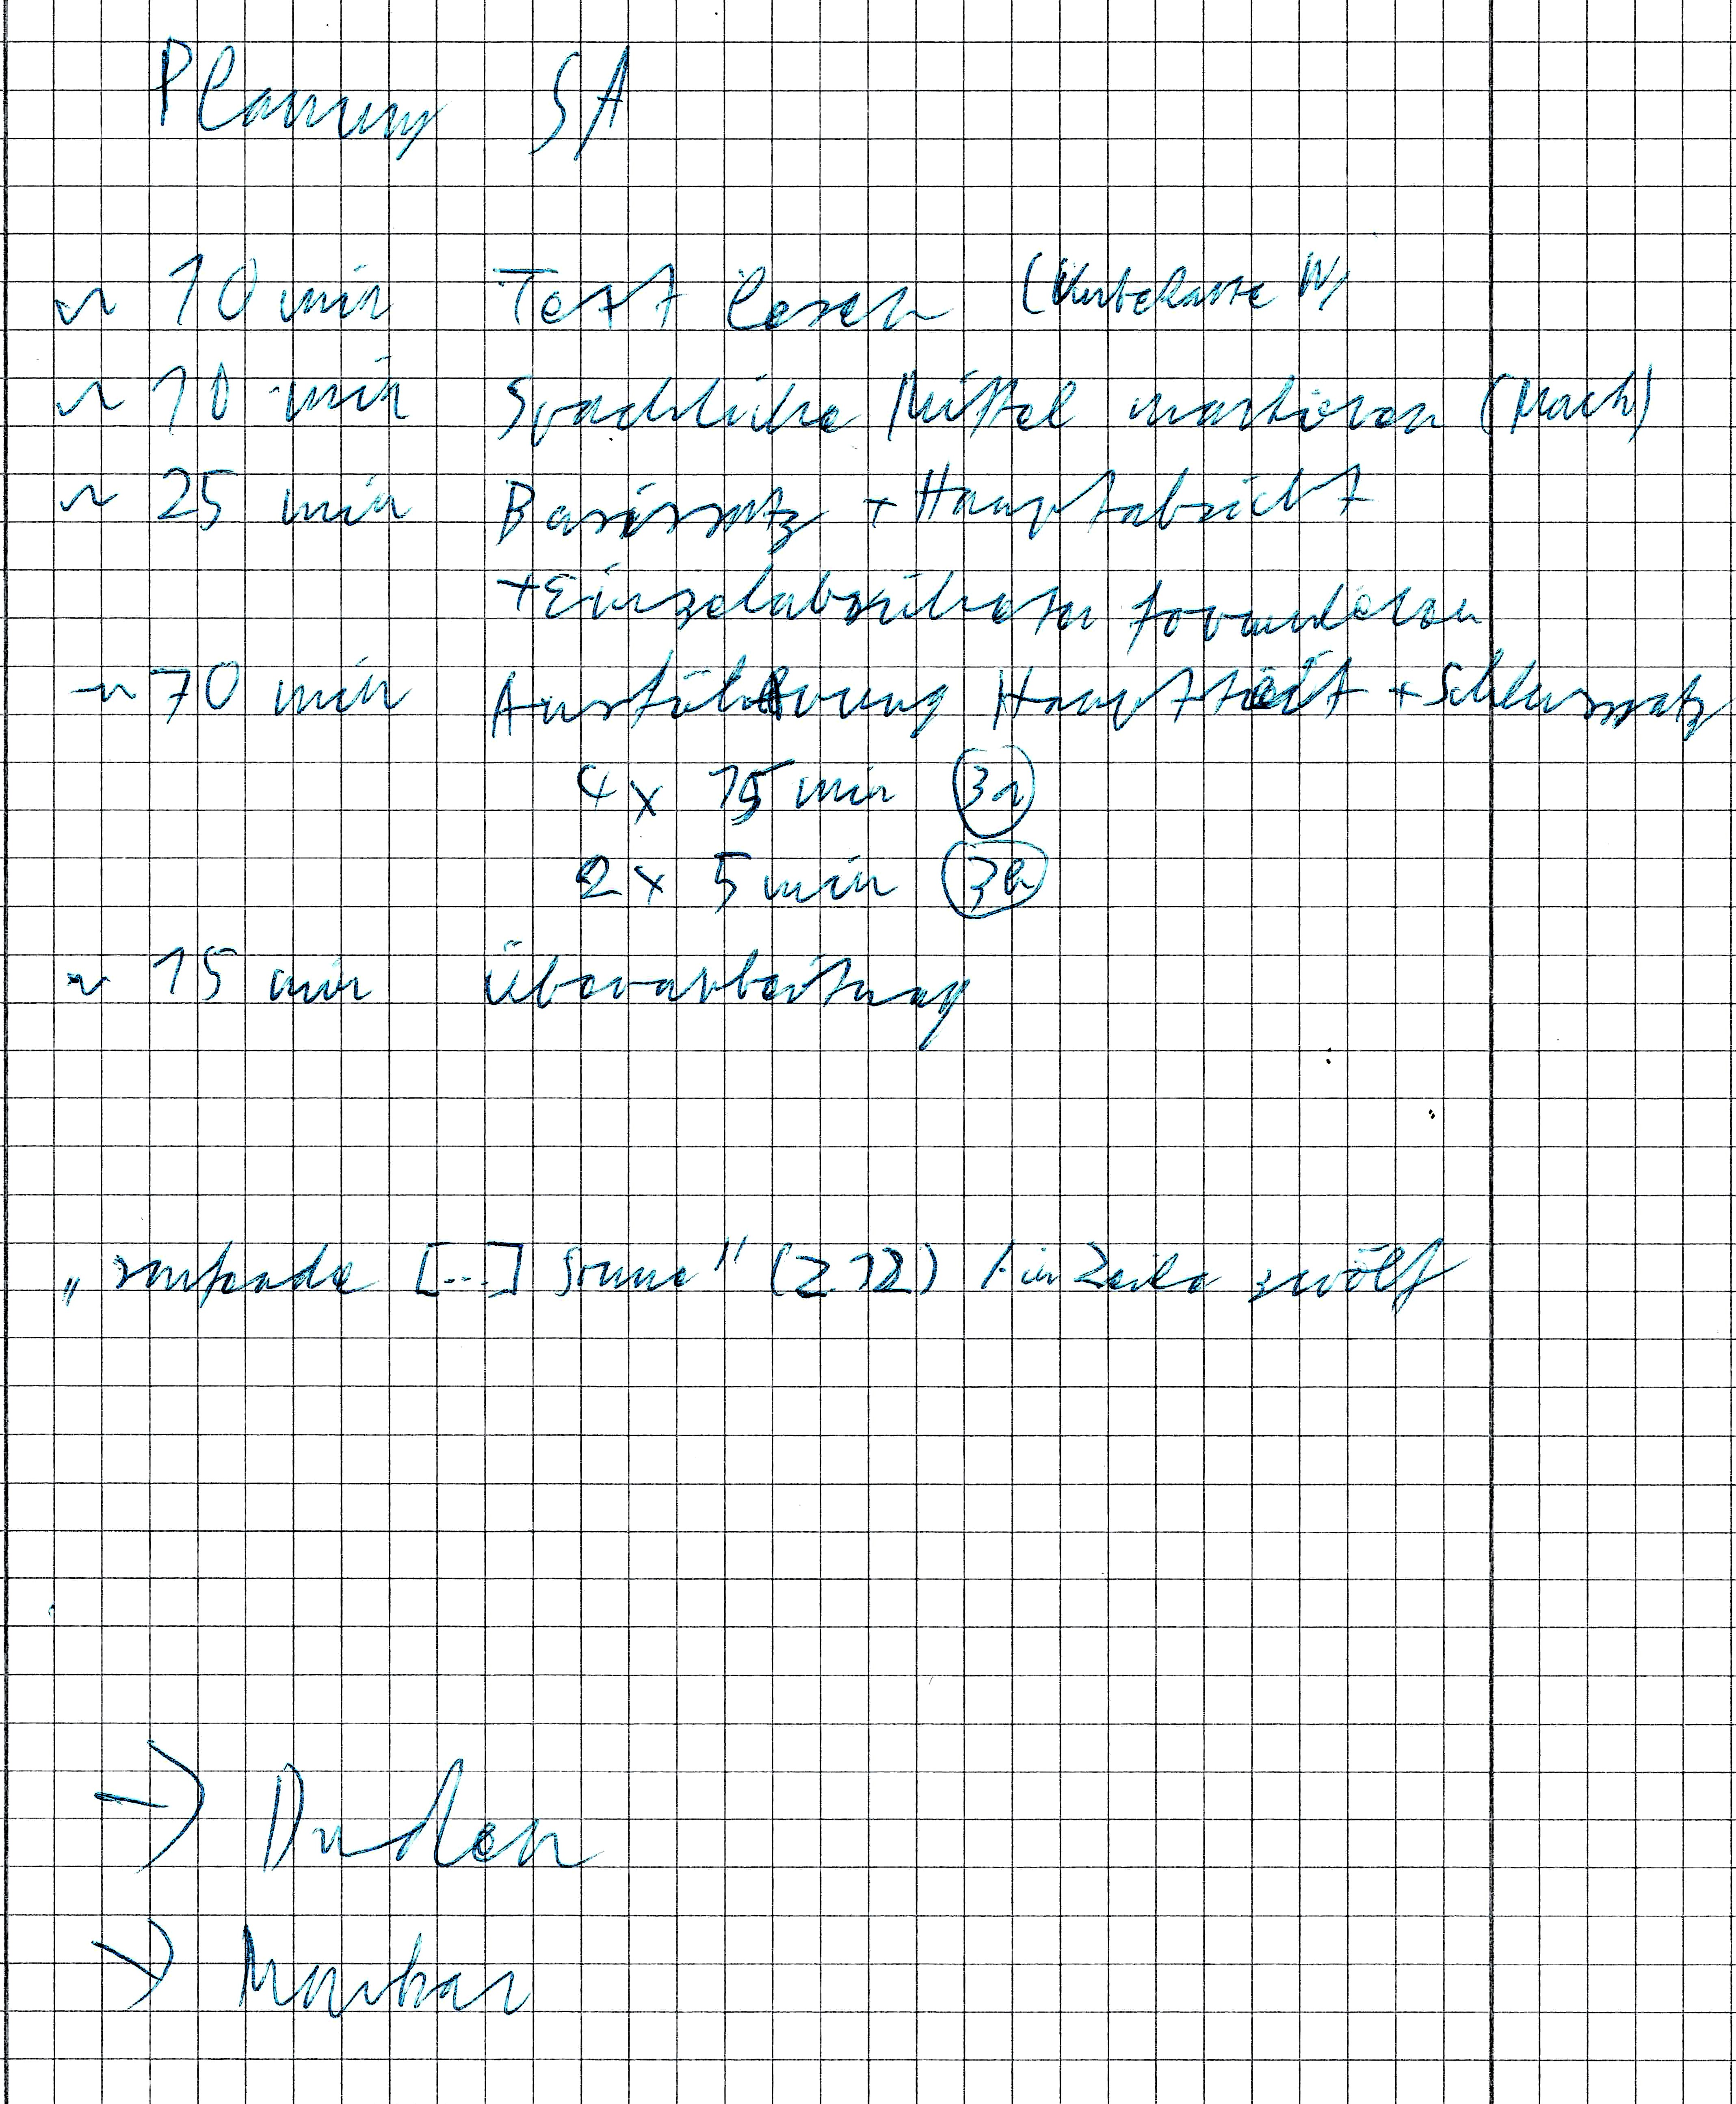 Planung SA
~ 10 min Text lesen (Unbekannte W)
~ 10 min Sprachliche Mittel markieren (Mach)
~ 25 min Basissatz + Hauptabsicht
+ Einzelabsichten formulieren
~ 70 min Ausführung Hauptteil + Schlusssatz
4x 15 min 3a
2x 5 min 3b
~ 15 min Überarbeitung
„ [...] Sonne" (Z 12) / in Zeile zwölf
→ Duden
→ Marker